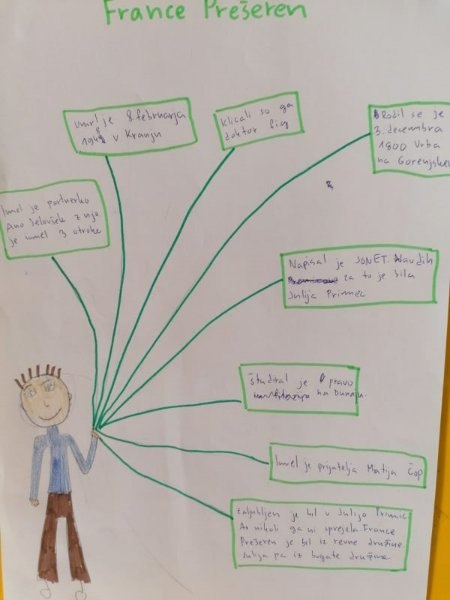 France Prešeren
umrl je 8. februarja
v Kranju
Klicali so ga
doktor Fig
Rodil se je
3. decembra
1800 Vrba
na Gorenjskem
Imel je partnerko
Ano Jelovšek z njo
je imel 3 otroke
Napisal je SONET
za to je bila
Julija Primec
študiral je pravo
na Dunaju
Imel je prijatelja Matija Čop
Zaljubljen je bil v Julijo Primic
Ar nikoli ga ni sprejela France
Prešeren je bil iz revne družine
Julija pa iz bogate družine